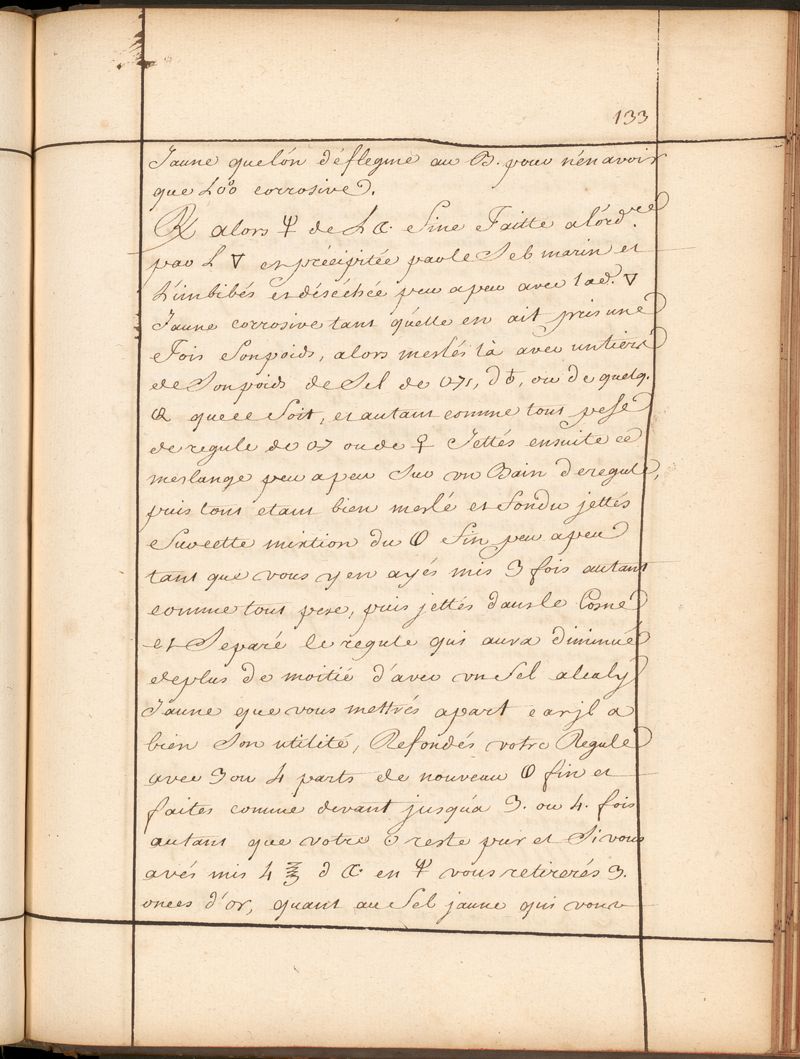 133
Jaune quelón déflegme au B. pour n'en avoir
que L'oo corrosive.
℞ alors 🜍 de L ☾. fine Faitte a l'ord.re
par L 🜄 et précipitée par le Sel marin et
L'imbibés et déséchée peu a peu avec lad. 🜄
Jaune corrosive tant qu'elle en ait pris une
Fois Son poids, alors meslés là avec un tiers
de Son poids de Sel de d ♄, ou de quelq.
que ce Soit, et autant comme tout pese
de regule de ou de ♀ Jettés ensuite ce
meslange peu a peu Sur vn Bain de regule,
puis tout etant bien meslé et fondu jettés
Sur cette mixtion du fin peu a peu
tant que vous y en ayés mis 3 fois autant
comme tout pese, puis jettés dans le Cosne
et Separé le regule qui aura diminué
de plus de moitié d'avec vn Sel alcaly
Jaune que vous mettrés apart car jl a
bien Son utilité, Refondés votre Regule
avec 3 ou 4 parts de nouveau fin et
faites comme devant jusqu'a 3. ou 4. fois
autant que votre reste pur et Si vous
avés mis 4 ℥ d ☾. en vous retirerés 3.
onces d'or, quant au Sel jaune qui vous